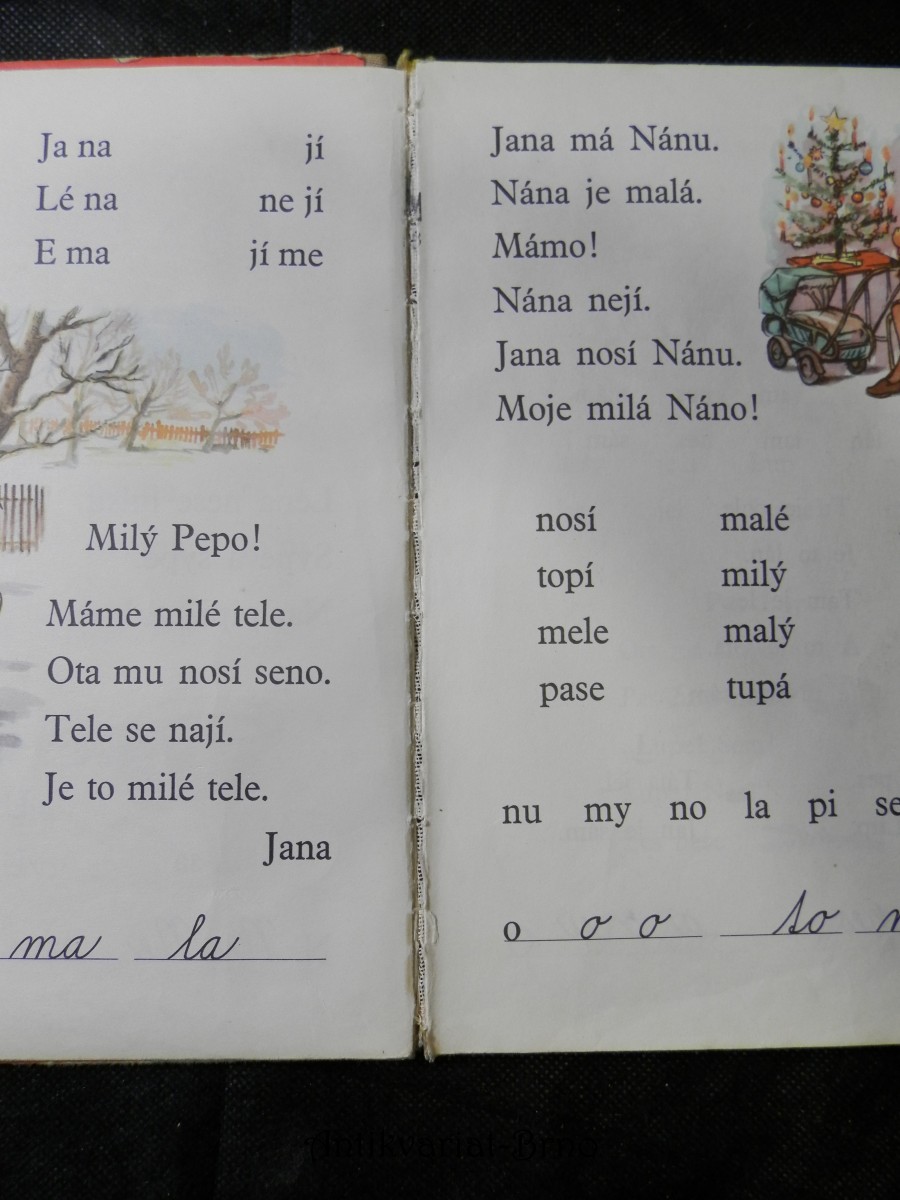 Ja na jí
Lé na ne jí
E ma jí me
Milý Pepo!
Máme milé tele.
Ota mu nosí seno.
Tele se nají.
Je to milé tele.
Jana
ma la
Jana má Nánu.
Nána je malá.
Mámo!
Nána nejí.
Jana nosí Nánu.
Moje milá Náno!
nosí malé
topí milý
mele malý
pase tupá
nu my no la pi se
o o o so
Antikvariat-Brno